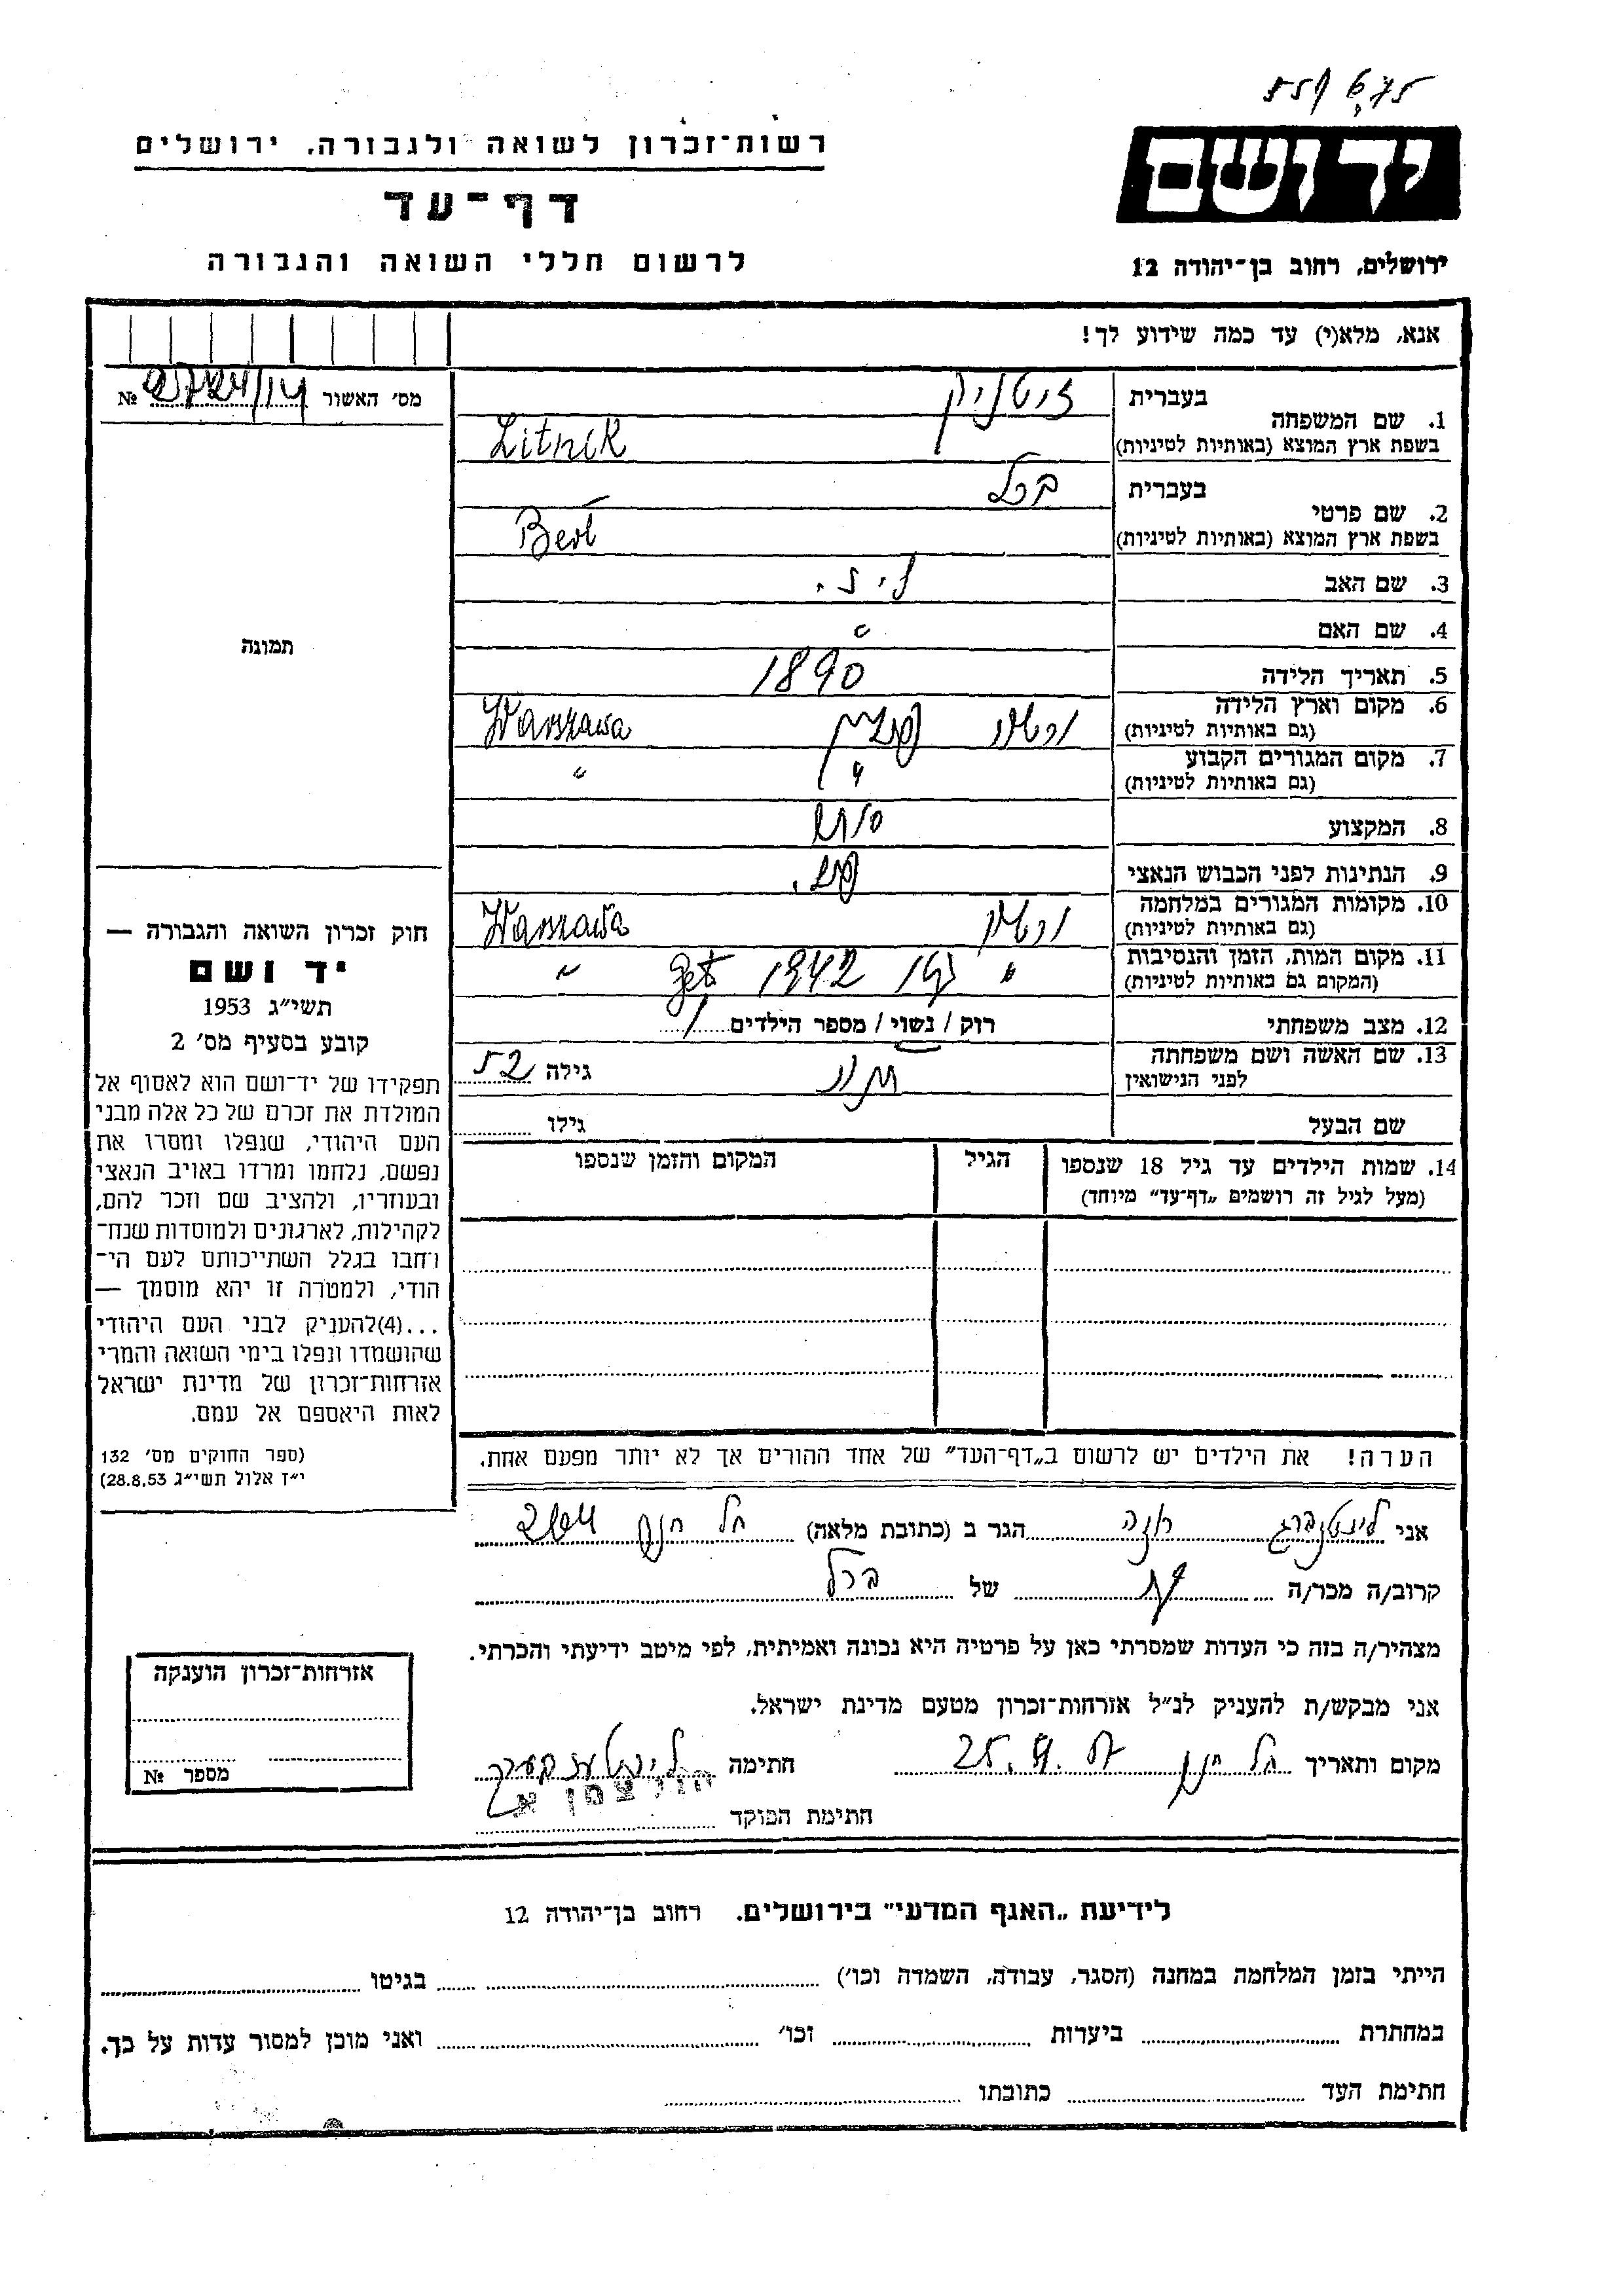 רשות-זכרון לשואה ולגבורה, ירושלים
דף-עד
לרשום חללי השואה והגבורה
יד ושם
ירושלים, רחוב בן-יהודה 12
אנא, מלא(י) עד כמה שידוע לך!
מס׳ האשור №
1. שם המשפחה
בעברית
בשפת ארץ המוצא (באותיות לטיניות)
Litnik
2. שם פרטי
בעברית ברל
בשפת ארץ המוצא (באותיות לטיניות) Berl
3. שם האב
4. שם האם "
5. תאריך הלידה 1890
6. מקום וארץ הלידה
(גם באותיות לטיניות) Warszawa
7. מקום המגורים הקבוע
(גם באותיות לטיניות) " "
8. המקצוע סוחר
9. הנתינות לפני הכבוש הנאצי פול.
10. מקומות המגורים במלחמה
(גם באותיות לטיניות) Warszawa
11. מקום המות, הזמן והנסיבות
(המקום גם באותיות לטיניות) " 1942 "
12. מצב משפחתי רוק / נשוי / מספר הילדים 1
13. שם האשה ושם משפחתה
לפני הנישואין גילה 52
שם הבעל גילו
14. שמות הילדים עד גיל 18 שנספו
(מעל לגיל זה רושמים „דף-עד" מיוחד)
הגיל
המקום והזמן שנספו
הערה! את הילדים יש לרשום ב„דף-העד" של אחד ההורים אך לא יותר מפעם אחת.
תמונה
חוק זכרון השואה והגבורה —
יד ושם
תשי״ג 1953
קובע בסעיף מס׳ 2
תפקידו של יד-ושם הוא לאסוף אל
המולדת את זכרם של כל אלה מבני
העם היהודי, שנפלו ומסרו את
נפשם, נלחמו ומרדו באויב הנאצי
ובעוזריו, ולהציב שם וזכר להם,
לקהילות, לארגונים ולמוסדות שנח־
רבו בגלל השתייכותם לעם הי־
הודי, ולמטרה זו יהא מוסמך —
...(4)להעניק לבני העם היהודי
שהושמדו ונפלו בימי השואה והמרי
אזרחות-זכרון של מדינת ישראל
לאות היאספם אל עמם.
(ספר החוקים מס׳ 132
י״ז אלול תשי״ג 28.8.53)
אני הגר ב (כתובת מלאה)
קרוב/ה מכר/ה של ברל
מצהיר/ה בזה כי העדות שמסרתי כאן על פרטיה היא נכונה ואמיתית, לפי מיטב ידיעתי והכרתי.
אני מבקש/ת להעניק לנ״ל אזרחות-זכרון מטעם מדינת ישראל.
מקום ותאריך חתימה
חתימת הפוקד
אזרחות-זכרון הוענקה
מספר №
לידיעת „האגף המדעי" בירושלים, רחוב בן-יהודה 12
הייתי בזמן המלחמה במחנה (הסגר, עבודה, השמדה וכו׳) בגיטו
במחתרת ביערות וכו׳ ואני מוכן למסור עדות על כך.
חתימת העד כתובתו